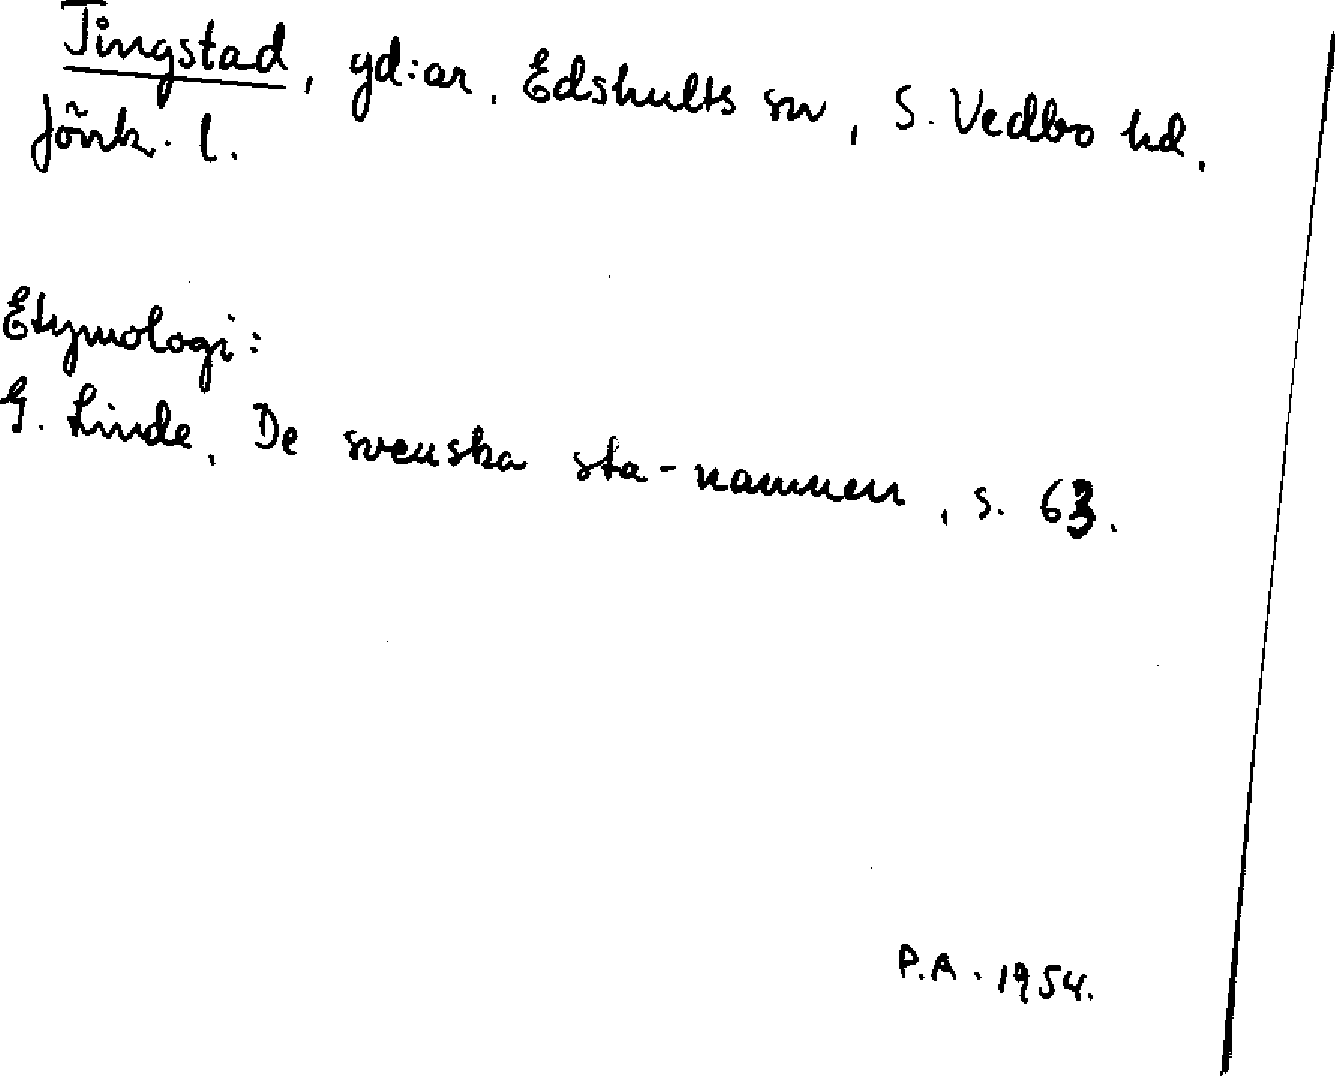 Tingstad, gd:ar, Edshults sn, S. Vedbo hd,
Jönk. l.
Etymologi:
G. Linde, De svenska sta-namnen, s. 63.
P.A. 1954.